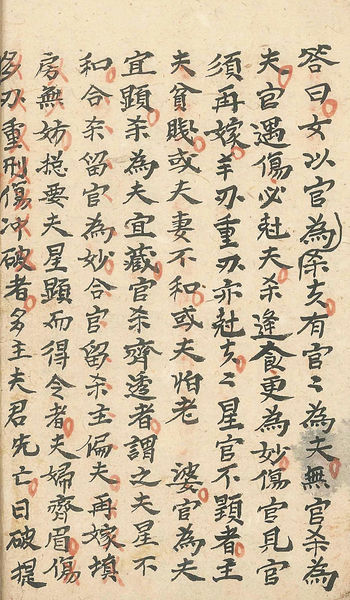 答曰女以官為杀夫有官〻為夫無官杀為
夫官遇傷必尅夫杀逢食更為妙傷官見官
須再嫁羊刃重刃亦尅夫〻星官不顕者主
夫貧賎或夫妻不和或夫怕老 婆官為夫
宜顕杀為夫宜藏官杀齊透者謂之夫星不
和合杀留官為妙合官留杀主偏夫再嫁填
房無妨摠要夫星顕而得令者夫婦齊眉傷
多刃重刑傷冲破者多主夫君先亡日破提